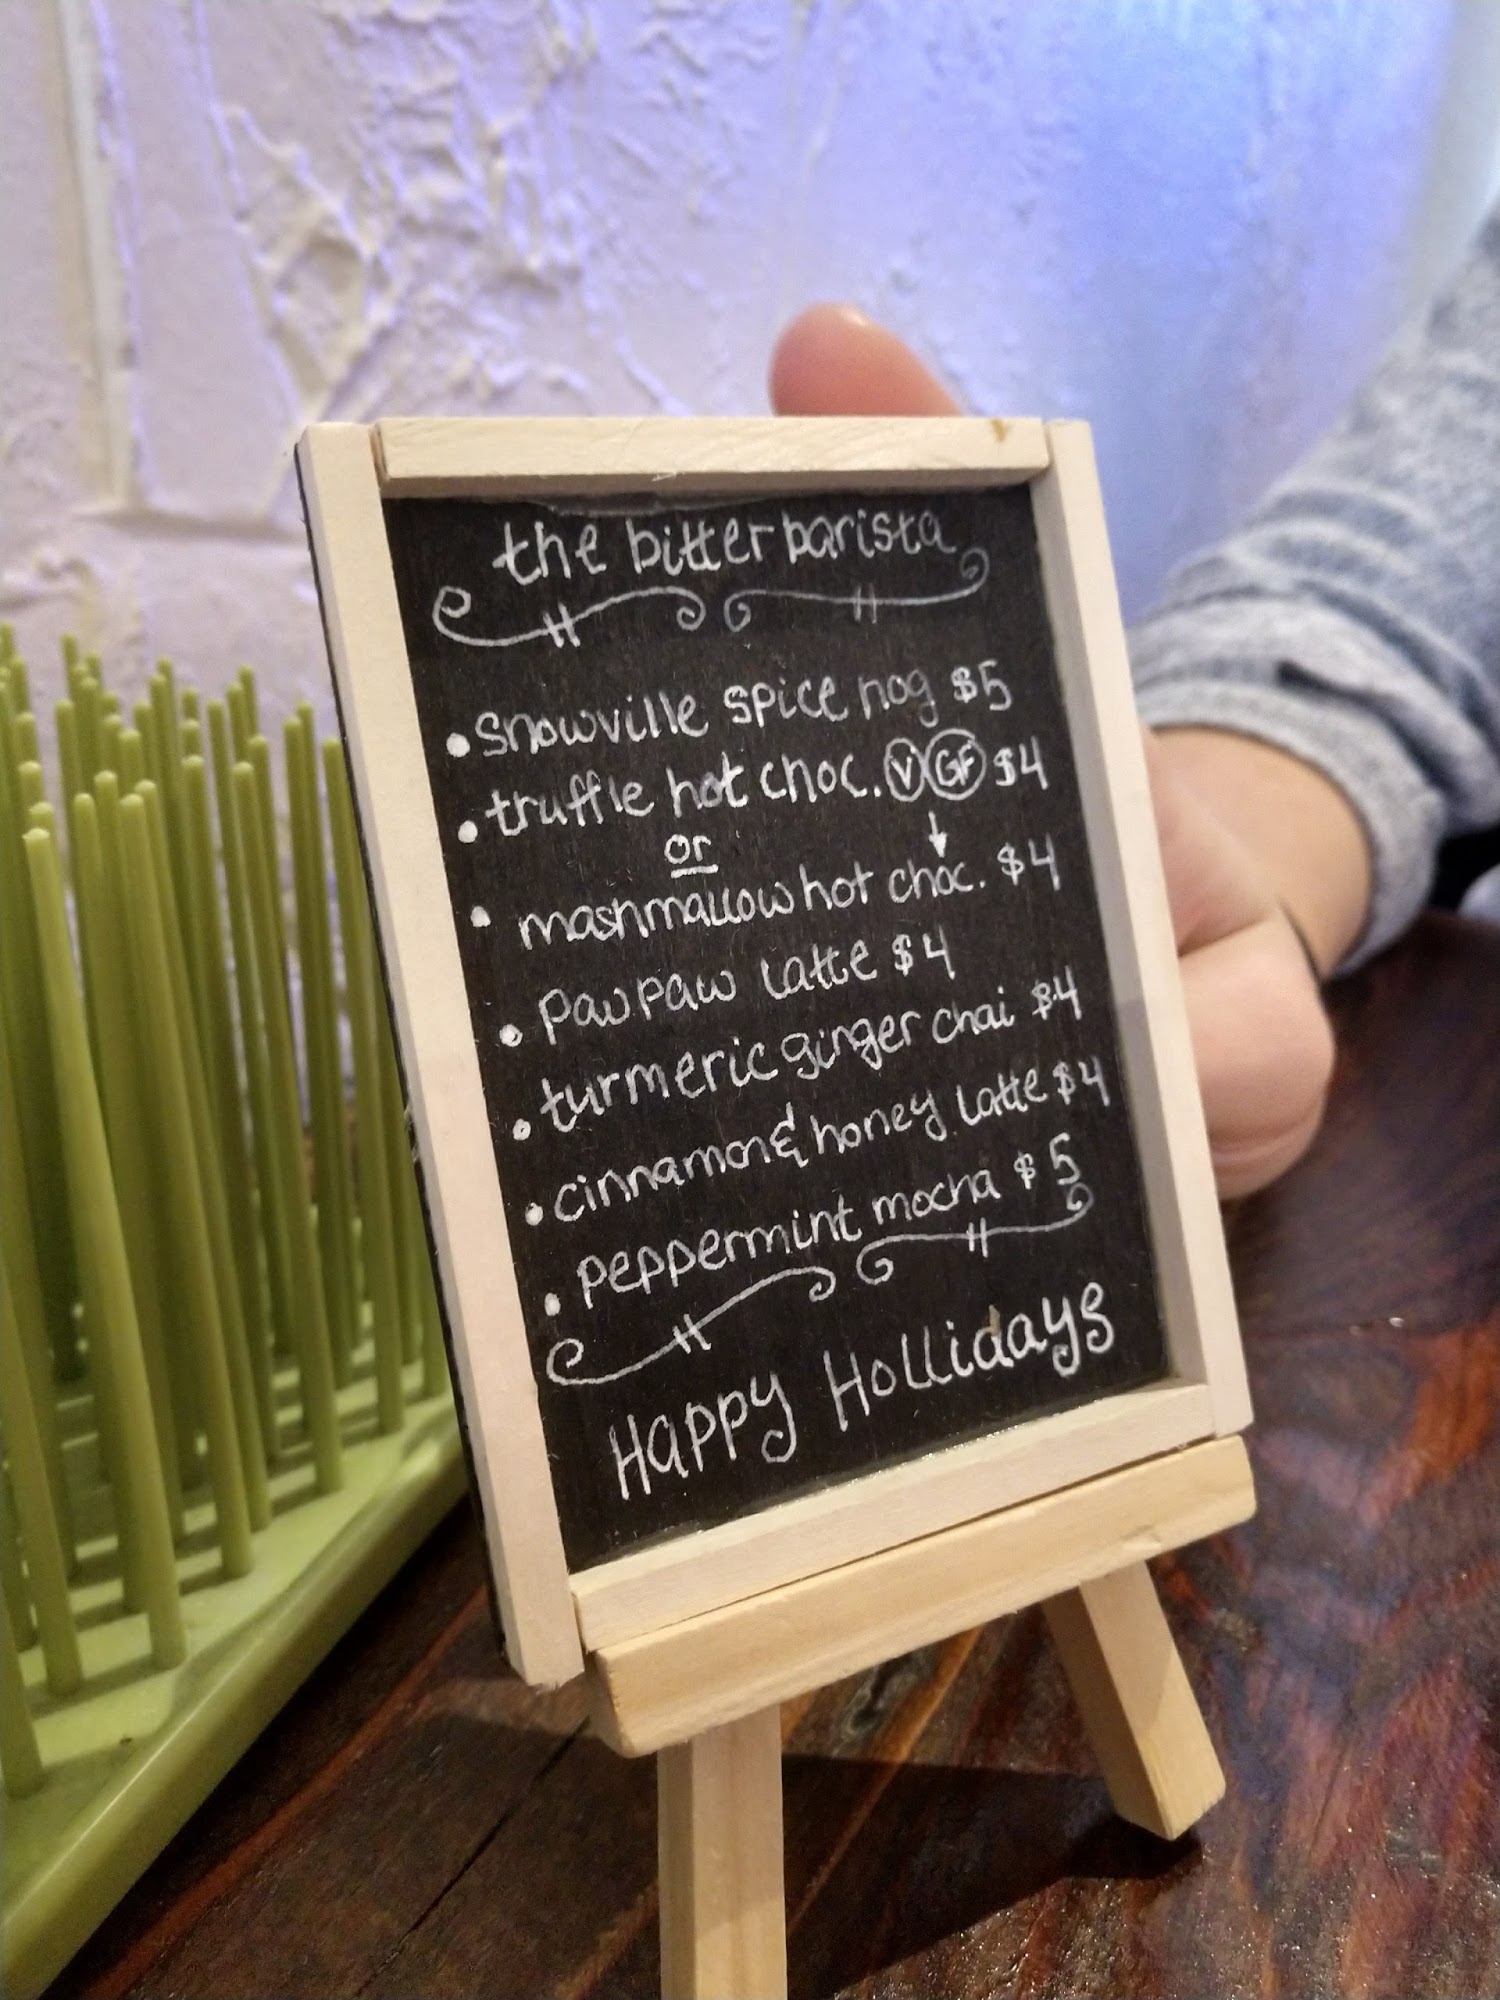 the bitter barista
• snowville spice nog $5
• truffle hot choc. V GF $4
or ↓
• mashmallow hot choc. $4
• pawpaw latte $4
• turmeric ginger chai $4
• cinnamon & honey latte $4
• peppermint mocha $5
Happy Hollidays